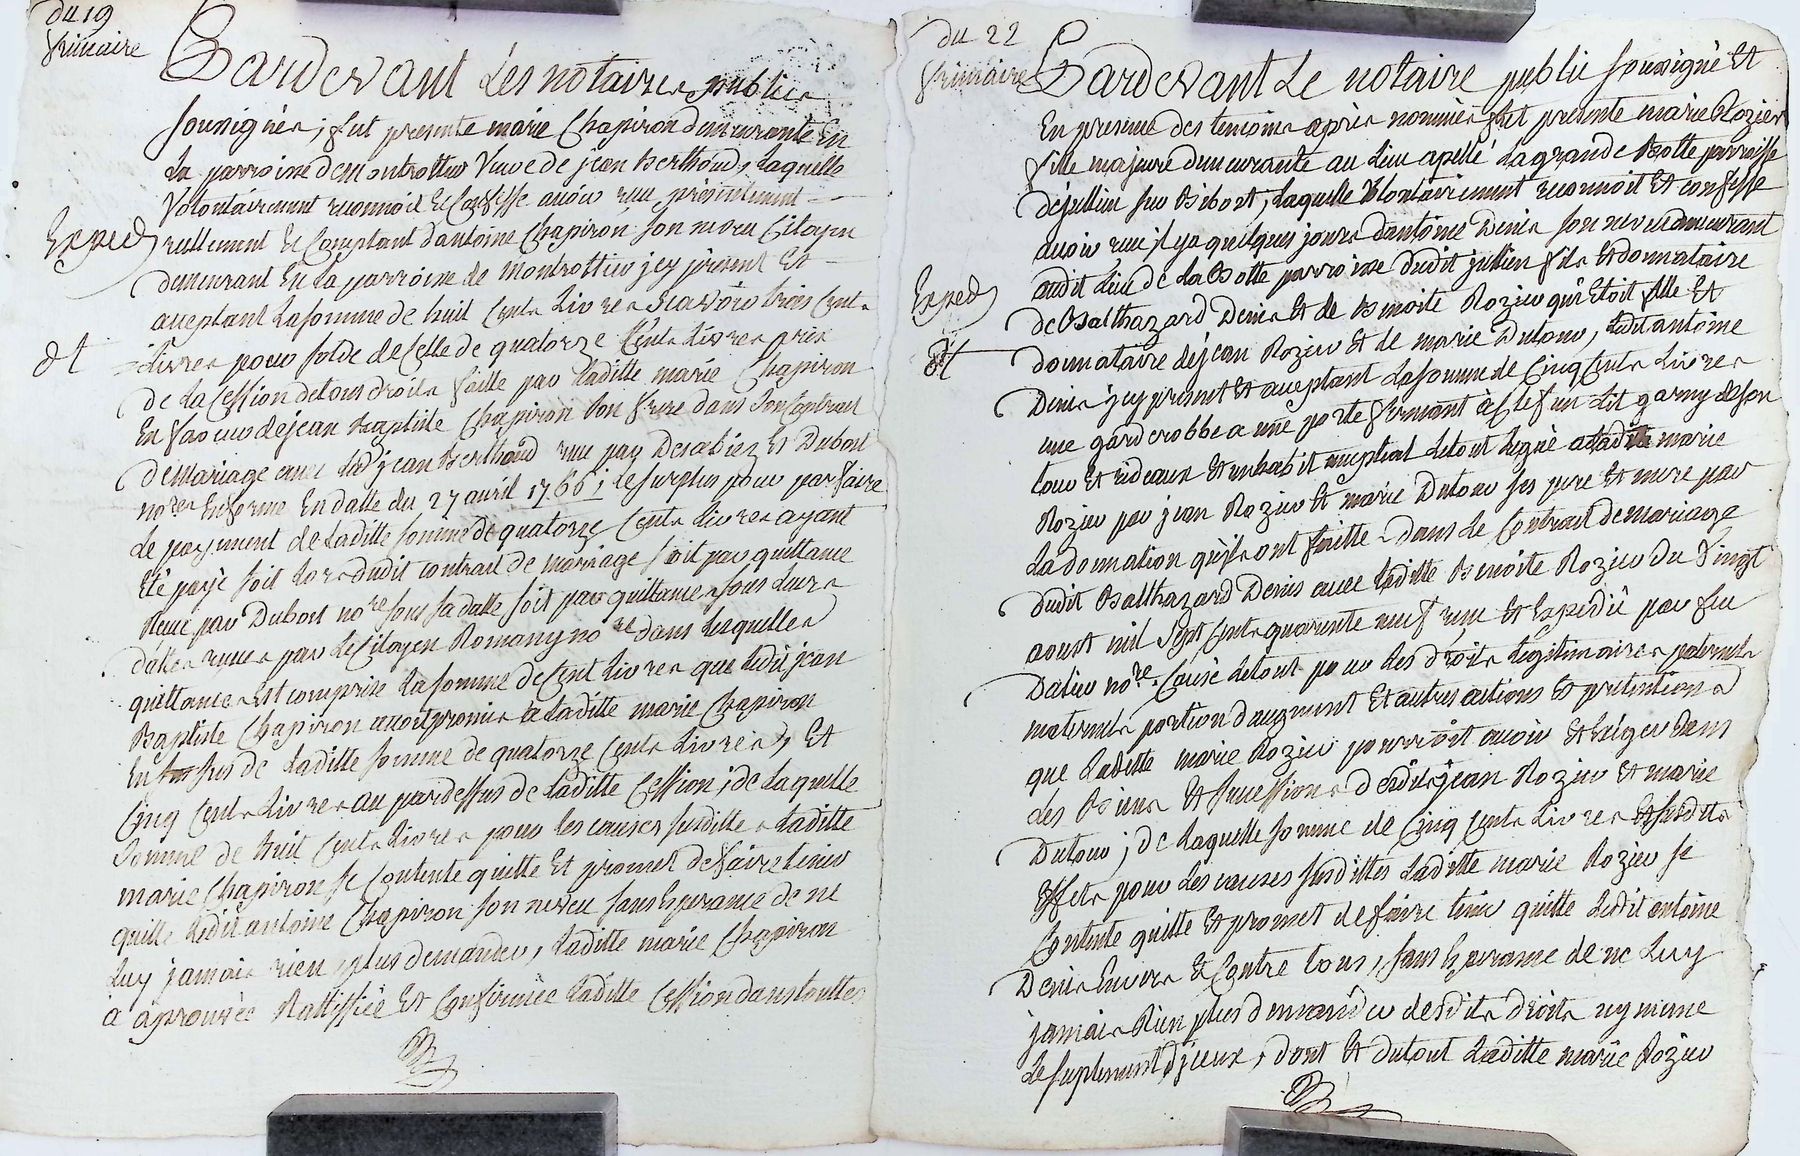 du 19
frimaire
Pardevant Les notaires publics
soussignés, fut presente marie Chapiron demeurante En
La parroisse de Montrottier Veuve de jean Berthoud, Laquelle
Volontairement reconnoit Et Confesse avoir reçu présentement
Exped
réellement Et Comptant d'antoine Chapiron son neveu Citoyen
demeurant En La parroisse de Montrottier jcy présent Et
aceptant La somme de huit Cents Livres scavoir trois Cents
dt
Livres pour solde de Celle de quatorze Cents Livres prix
de La Cession de tous droits faitte par Laditte marie Chapiron
En faveur de jean Baptiste Chapiron son frere dans son Contrat
de Mariage avec Led. jean Berthoud reçu par Desabiez Et Dubost
nores En forme En datte du 27 avril 1766; Le surplus pour parfaire
Le payement de Laditte somme de quatorze Cents Livres ayant
Eté payé soit Lors dudit contrat de mariage, soit par quittance
Reçue par Dubost nore sous sa datte soit par quittances sous Leurs
dattes reçues par Le Citoyen Romany nore dans Lesquelles
quittances Est comprise La somme de Cent Livres que Ledit jean
Baptiste Chapiron avoit promis a Laditte marie Chapiron
En sus de Laditte somme de quatorze Cents Livres, Et
Cinq Cents Livres au pardessus de Laditte Cession; de Laquelle
somme de huit Cents Livres pour les causes susdittes Laditte
marie Chapiron se Contente quitte Et promet de faire tenir
quitte Ledit antoine Chapiron son neveu sans Esperance de ne
Luy jamais rien plus demander, Laditte marie Chapiron
a aprouvée Rattiffiée Et Confirmée Laditte Cession dans touttes
du 22
frimaire
Pardevant Le notaire public soussigné Et
En presence des temoins après nommés fut presente marie Rozier
fille majeure demeurante au Lieu apellé La grande Botte parroisse
de jullien sur Bibost, Laquelle Volontairement reconnoit Et confesse
avoir reçu il y a quelques jours d'antoine Denis son neveu demeurant
Exped
audit Lieu de La Botte parroisse dudit jullien fils Et donnataire
de Balthazard Denis Et de Benoite Rozier qui Etoit fille Et
dt
donnataire de jean Rozier Et de marie Dutour, Ledit antoine
Denis jcy present Et aceptant La somme de Cinq Cents Livres
une garderobbe a une porte fermant à Clef un Lit garny de son
tour Et rideaux Et un habit nuptial Le tout Legué a Laditte marie
Rozier par jean Rozier Et marie Dutour ses pere Et mere par
La donnation qu'ils ont faitte dans Le Contrat de mariage
dudit Balthazard Denis avec Laditte Benoite Rozier du Vingt
aoust mil Sept Cents quarente neuf reçu Et Expedié par feu
Dalier nore. Causé Le tout pour Les droits Légitimaires paternels
maternels portion d'augment Et autres actions Et pretentions
que Laditte marie Rozier pourroit avoir Et Exiger dans
Les Biens Et successions desdits jean Rozier Et marie
Dutour; de Laquelle somme de Cinq Cents Livres Et susdits
Effets pour Les causes susdittes Laditte marie Rozier se
Contente quitte Et promet de faire tenir quitte Ledit antoine
Denis Envers Et Contre tous, sans Esperance de ne Luy
jamais Rien plus demander desdits droits ny meme
Le suplement d'jceux, dont Et dutout Laditte marie Rozier